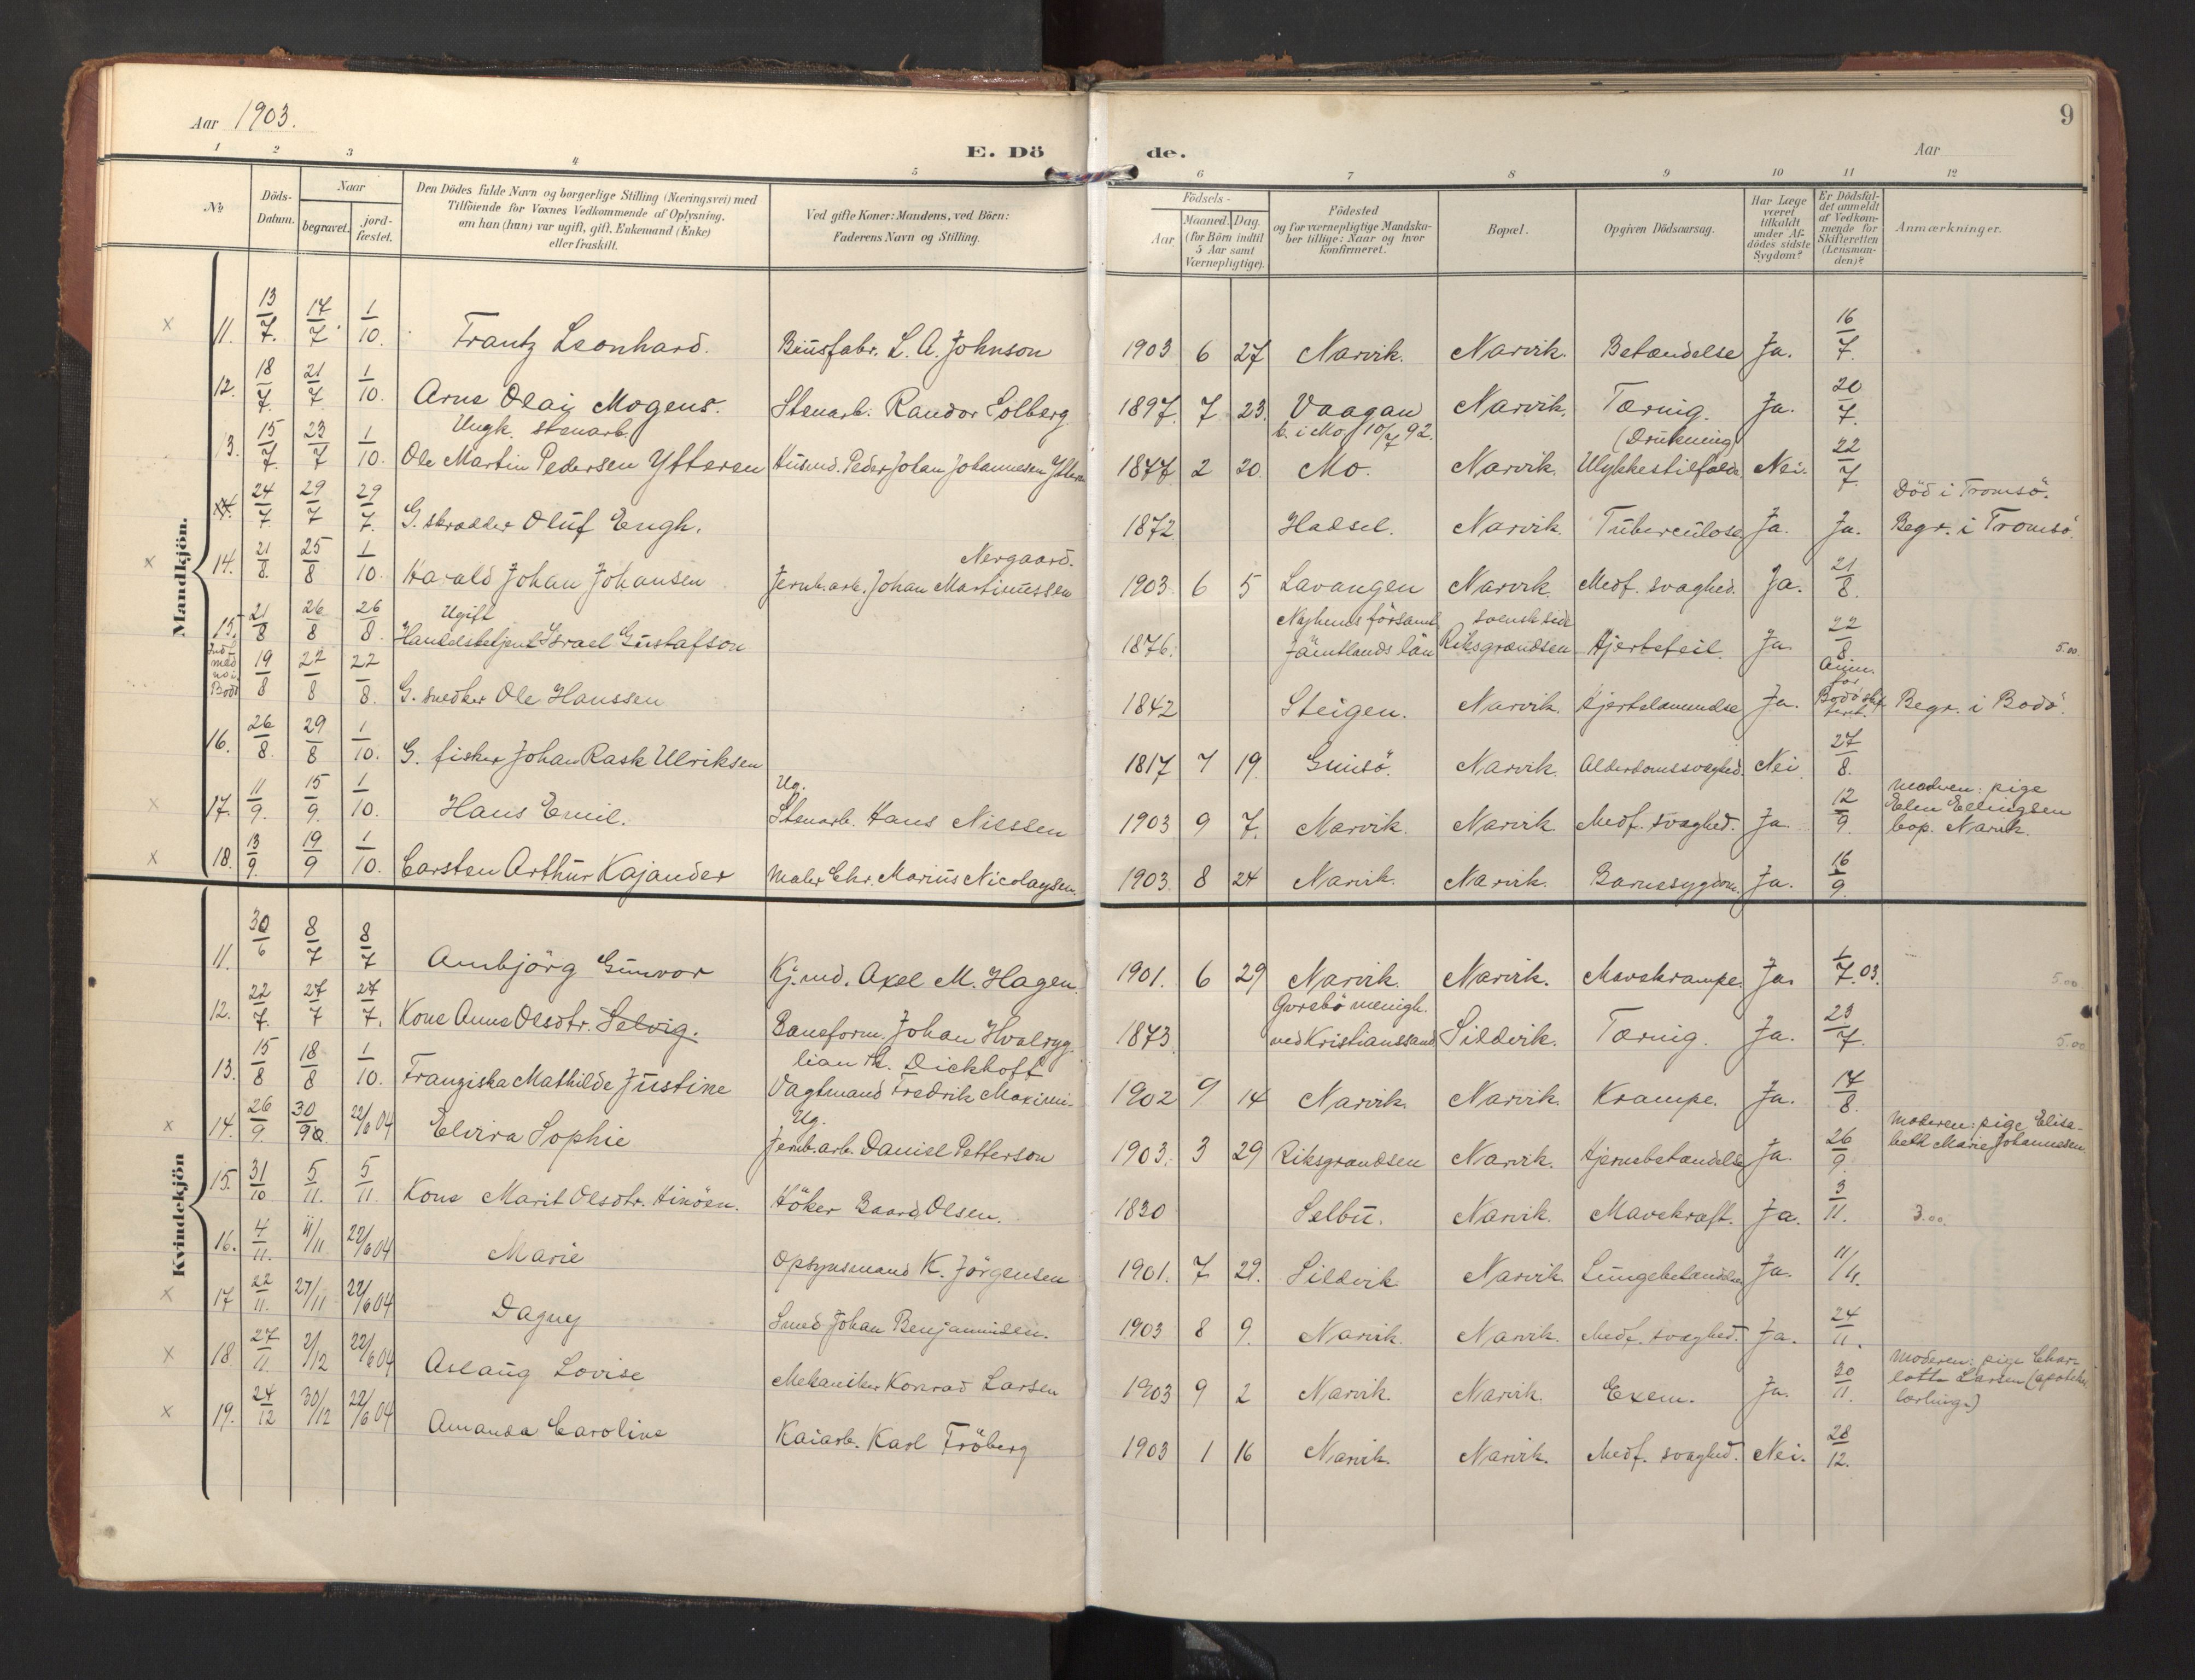 Aar 1903.
E. Dö
de.
Aar
9
1 2 3 4 5 6 7 8 9 10 11 12
No
Döds-Datum.
Naar
begravet.
jord-fæstet.
Den Dödes fulde Navn og borgerlige Stilling (Næringsvei) med
Tilföiende for Voxnes Vedkommende af Oplysning,
om han (hun) var ugift, gift, Enkemand (Enke)
eller fraskilt.
Ved gifte Koner: Mandens, ved Börn:
Faderens Navn og Stilling.
Födsels-
Aar
Maaned. Dag.
(for Börn indtil
5 Aar samt
Værnepligtige).
Födested
og for værnepligtige Mandska-
ber tillige: Naar og hvor
konfirmeret.
Bopæl.
Opgiven Dödsaarsag.
Har Læge
været
tilkaldt
under Af-
dödes sidste
Sygdom?
Er Dödsfal-
det anmeldt
af Vedkom-
mende for
Skifteretten
(Lensman-
den)?
Anmærkninger.
Mandkjön.
x 11. 13/7. 17/7. 1/10. Frantz Leonhard. Brusfabr. L. A. Johnson 1903 6 27 Narvik. Narvik. Betændelse Ja. 16/7.
12. 18/7. 21/7 1/10. Arne Olai Mogens. Stenarb. Randor Solberg 1897. 7 23. Vaagan Narvik. Tæring. Ja. 20/7.
Ungk. stenarb. k. i Mo 10/7 92. (Drukning)
13. 15/7. 23/7 1/10. Ole Martin Pedersen Ytteren Husmd. Peder Johan Johannesen Yttern 1877 2 20. Mo. Narvik. Ulykkestilfælde Nei. 22/7.
Död i Tromsö.
24/7. 29/7 29/7. G. skrædder Oluf Engh. 1872 Hadsel. Narvik. Tuberculose Ja. Ja. Begr. i Tromsö.
Nergaard.
x 14. 21/8. 25/8 1/10. Harald Johan Johansen Jernb.arb. Johan Martinussen 1903 6 5 Lavangen Narvik. Medf. svaghed. Ja. 21/8.
Ugift svensk side
15. 21/8 26/8 26/8. Handelsbetjent Israel Gustafson 1876. Jämtlands län Riksgrændsen Hjertefeil. Ja 22/8 5.00
Ind
med
no i
Bodö 19/8 22/8 22/8. G. snedker Ole Hanssen 1842 Steigen. Narvik. Hjertelammelse Ja. Anm.
for
Bodö skif
teret. Begr. i Bodö.
16. 26/8. 29/8 1/10. G. fisker Johan Rask Ulriksen 1817 7 19. Gimsö. Narvik. Alderdomssvaghed. Nei. 27/8.
Ug. Moderen: pige
x 17. 11/9. 15/9. 1/10. Hans Emil. Stenarb. Hans Nilssen 1903 9 7. Narvik. Narvik. Medf. svaghed. Ja. 12/9. Elen Ellingsen
bop. Narvik.
x 18. 13/9. 19/9 1/10. Carsten Arthur Kajander Maler Chr. Marius Nicolaysen. 1903. 8 24 Narvik. Narvik. Barnesygdom. Ja. 16/9.
Kvindekjön
11. 30/6 8/7 8/7 Ambjörg Gunvor Kj.md. Axel M. Hagen. 1901. 6 29 Narvik. Narvik. Mavekrampe. Ja. 1/7.03. 5.00
menigh.
12. 22/7. 27/7 27/7. Kone Anne Olsdtr. Selvig. Baneform. Johan Hvalryg. 1873 ved Kristianssand Sildvik. Tæring. Ja. 23/7. 5.00
lian Dickhoff
13. 15/8 18/8 1/10. Franziska Mathilde Justine Vagtmand Fredrik Maximi- 1902 9 14 Narvik. Narvik. Krampe. Ja. 17/8.
Ug. Moderen: pige Elisa-
x 14. 26/9. 30/9 22/6 04 Elvira Sophie Jernb.arb. Daniel Petterson 1903. 3 29 Riksgrændsen Narvik. Hjernebetændelse Ja. 26/9. beth Marie Johannesen
15. 31/10 5/11. 5/11. Kone Marit Olsdtr. Höker Baard Olsen. 1830 Selbu. Narvik. Mavekræft. Ja. 3/11. 3.00.
16. 4/11. 11/11 22/6 04 Marie Opsynsmand K. Jörgensen 1901. 7 22. Sildvik Narvik. Lungebetændelse Ja. 11/11.
x 17 22/11. 27/11 22/6 04 Dagny Smed Johan Benjaminsen. 1903 8 9. Narvik. Narvik. Medf. svaghed. Ja. 24/11.
Moderen: pige Char-
x 18. 27/11. 2/12 22/6 04 Aslaug Lovise Mekaniker Konrad Larsen 1903 9 2 Narvik. Narvik. Exem. Ja. 30/11. lotte Larsen (apothek
lærling.)
x 19. 24/12 30/12 22/6 04 Amanda Caroline Kaiarb. Karl Fröberg 1903 1 16 Narvik. Narvik. Medf. svaghed. Nei. 28/12.